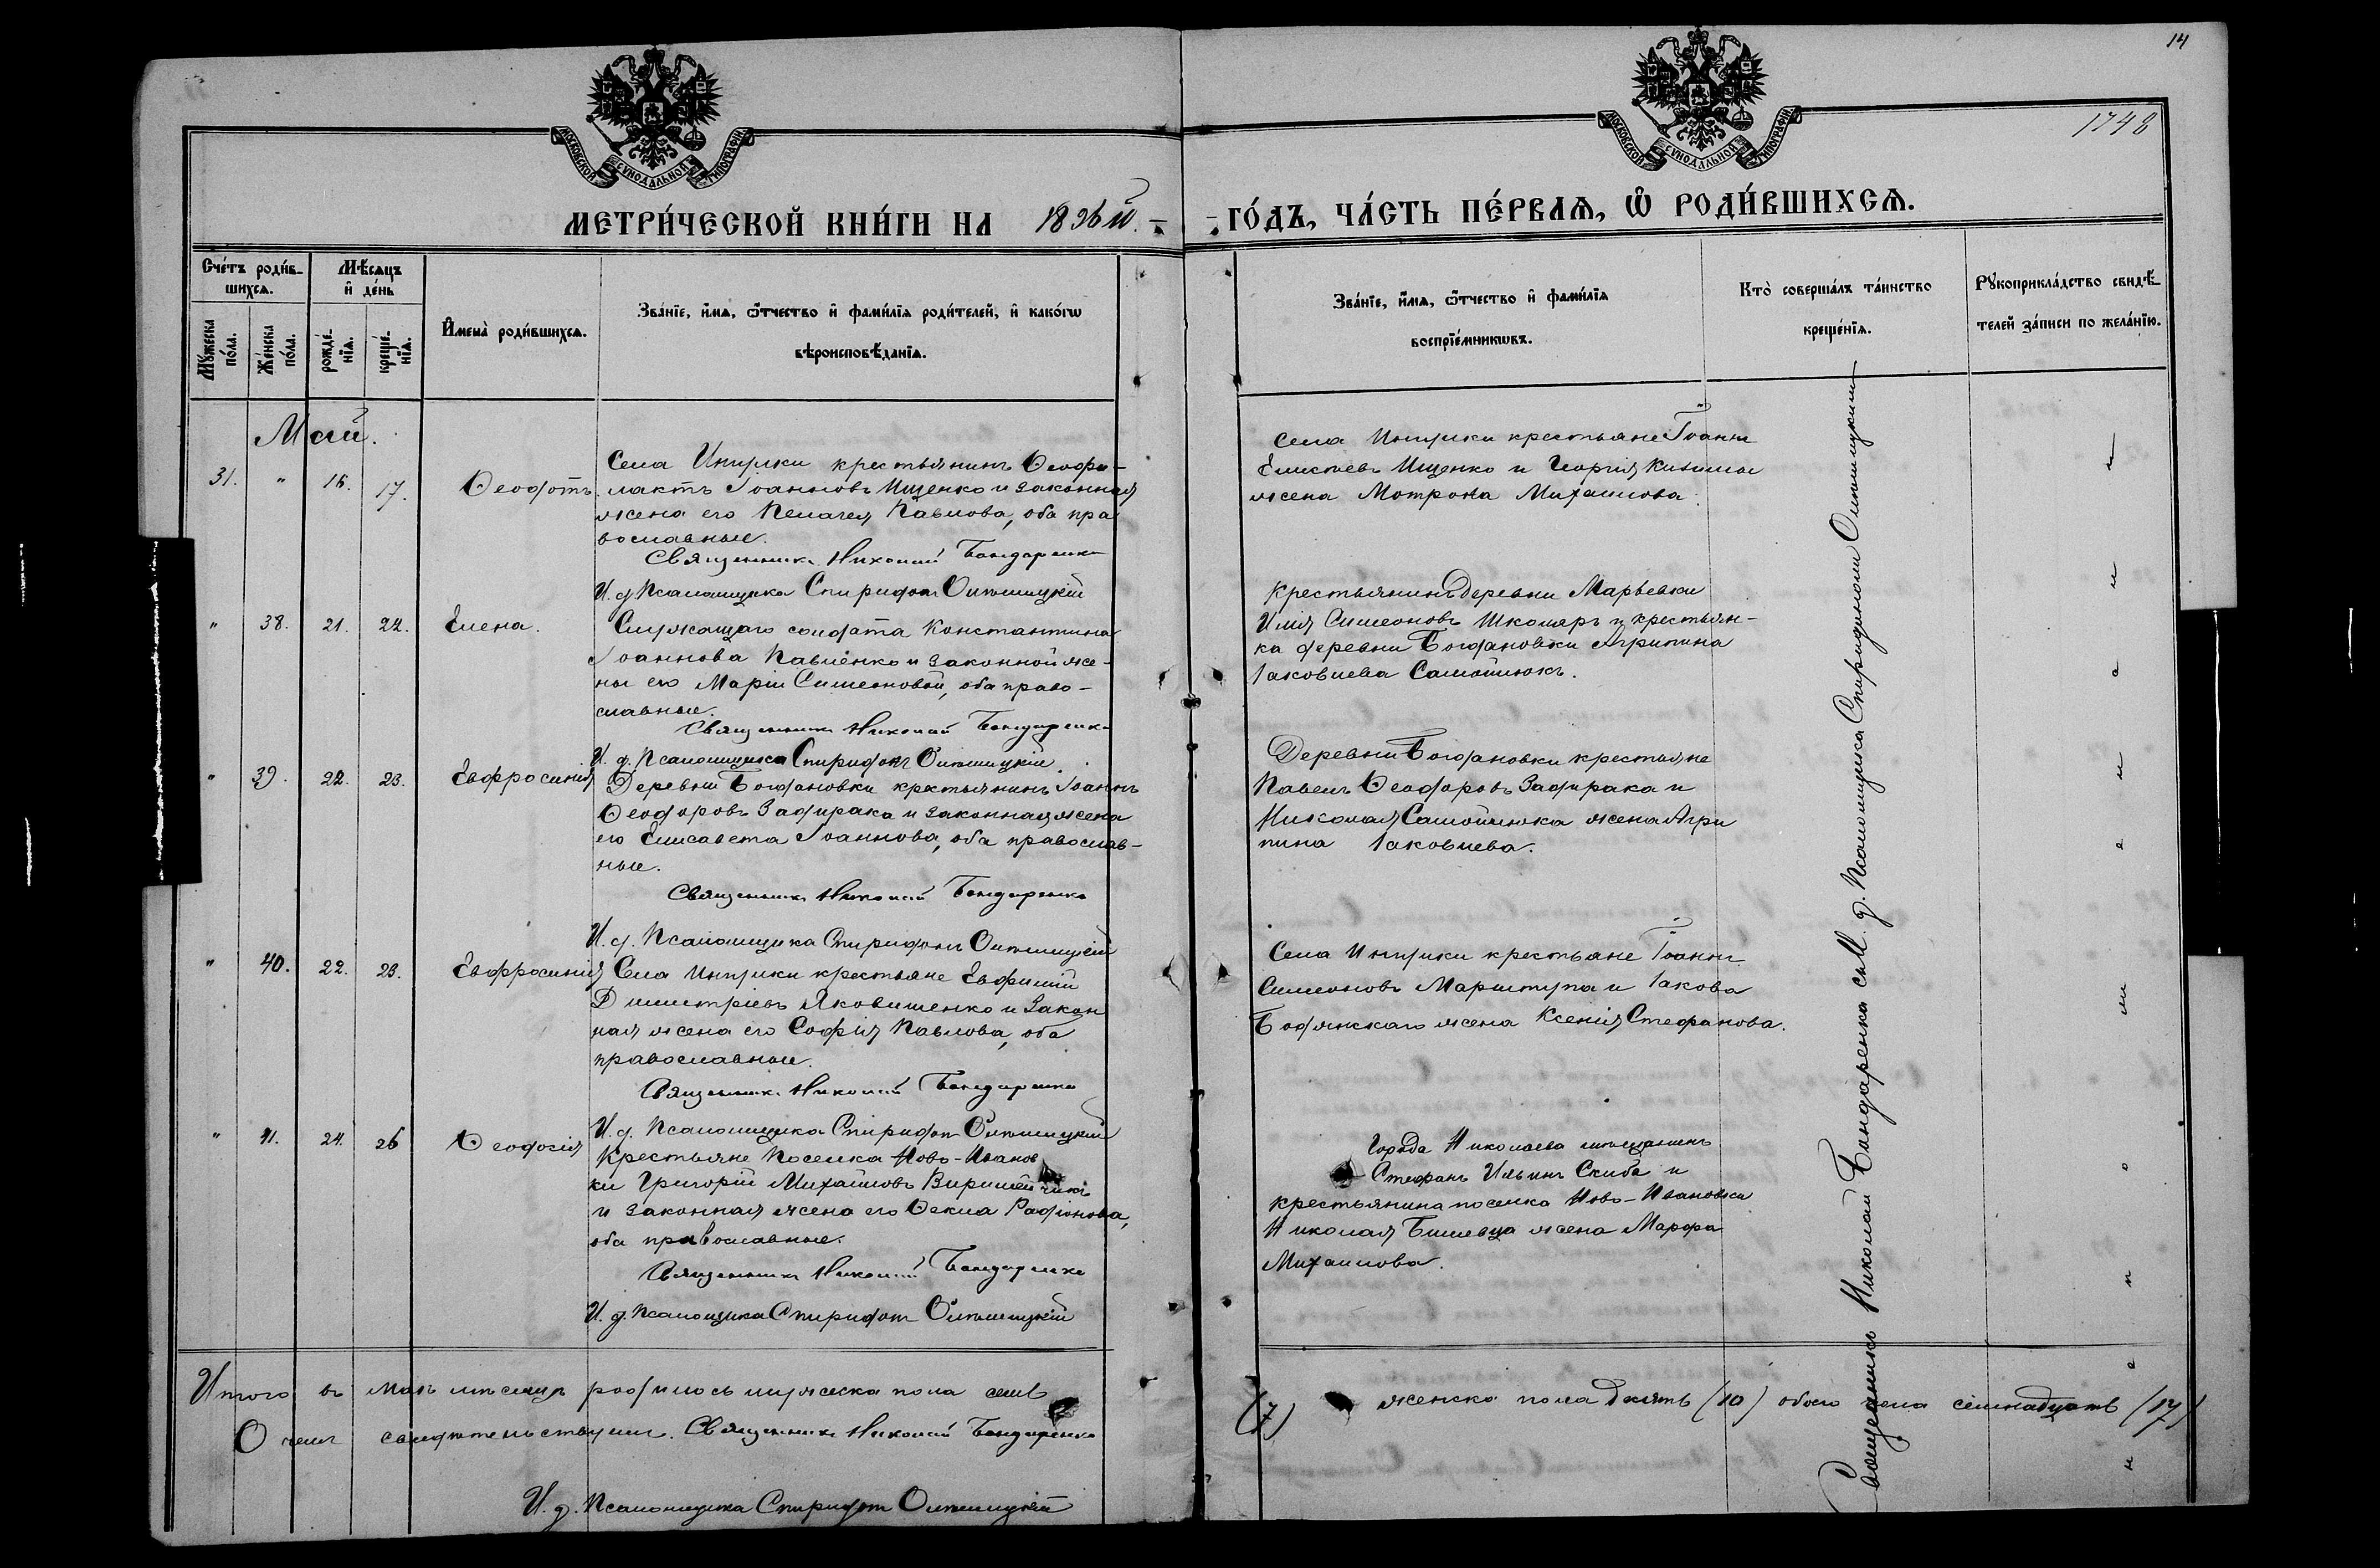 14
1748
МОСКОВСКОЙ СѴНОДАЛЬНОЙ ТИПОГРАФІИ
МОСКОВСКОЙ СѴНОДАЛЬНОЙ ТИПОГРАФІИ
МЕТРИ́ЧЕСКОЙ КНИ́ГИ НА 1896 й.
ГО́ДЪ, ЧА́СТЬ ПЕ́РВАѦ, Ѽ РОДИ́ВШИХСѦ.
Сче́тъ роди́в-
шихсѧ.
Мꙋ́жеска по́ла.
Же́нска по́ла.
Мѣ́сѧцъ
и҆ де́нь
рожде́-нїѧ.
креще́-нїѧ.
И҆мена̀ роди́вшихсѧ.
Зва́нїе, и҆́мѧ, ѻ҆́тчество и҆ фами́лїѧ роди́телей, и҆ како́гѡ
вѣроисповѣ́данїѧ.
Зва́нїе, и҆́мѧ, ѻ҆́тчество и҆ фами́лїѧ
воспрїе́мникѡвъ.
Кто̀ соверша́лъ та́инство
креще́нїѧ.
Рꙋкоприкла́дство свидѣ́-
телей за́писи по жела́нїю.
Май.
31. " 16. 17. Ѳеодотъ.
Села Ингулки крестьянинъ Ѳеофи-
лактъ Іоанновъ Ищенко и законная
жена его Пелагея Павлова, оба пра
вославные.
Священникъ Николай Бондаренко
И. д. Псаломщика Спиридонъ
Села Ингулки крестьяне Іоаннъ
Елисеевъ Ищенко и Георгія
жена Мотрона Михаилова.
" 38. 21. 22. Елена.
Служащаго солдата Константина
Іоаннова Павленко и законной же-
ны его Маріи Симеоновой, оба право-
славные.
Священникъ Николай Бондаренко
И. д. Псаломщика Спиридонъ
Крестьянинъ деревни Марьевки
Илія Симеоновъ Школяръ и крестьян-
ка деревни Богдановки Агрипина
Іаковлева Самойлюкъ.
" 39. 22. 23. Евфросинія
Деревни Богдановки крестьянинъ Іоаннъ
Ѳеодоровъ Задирака и законная жена
его Елисавета Іоаннова, оба православ-
ные.
Священникъ Николай Бондаренко
И. д. Псаломщика Спиридонъ
Деревни Богдановки крестьяне
Павелъ Ѳеодоровъ Задирака и
Николая Самойлюка жена Агри
пина Іаковлева.
" 40. 22. 23. Евфросинія
Села Ингулки крестьяне Евфимій
Димитріевъ Яковишенко и закон
ная жена его Софія Павлова, оба
православные.
Священникъ Николай Бондаренко
И. д. Псаломщика Спиридонъ
Села Ингулки крестьяне Іоаннъ
Симеоновъ Мариступа и Іакова
Бодянскаго жена Ксенія Стефанова.
" 41. 24. 26 Ѳеодосія
Крестьяне поселка Ново-Иванов
ки Григорій Михайловъ
и законная жена его Ѳекла Родіонова,
оба православные.
Священникъ Николай Бондаренко
И. д. Псаломщика Спиридонъ
Города Николаева мѣщанинъ
Стефанъ Ильинъ Скиба и
крестьянина поселка Ново-Ивановки
Николая жена Марфа
Михаилова.
Священникъ Николай Бондаренко съ И. д. Псаломщика Спиридономъ
Итого въ маѣ мѣсяцѣ родилось мужеска пола семь
(7) женска пола десять (10) обоего пола семнадцать (17)
О чемъ свидѣтельствуемъ. Священникъ Николай Бондаренко
И. д. Псаломщика Спиридонъ